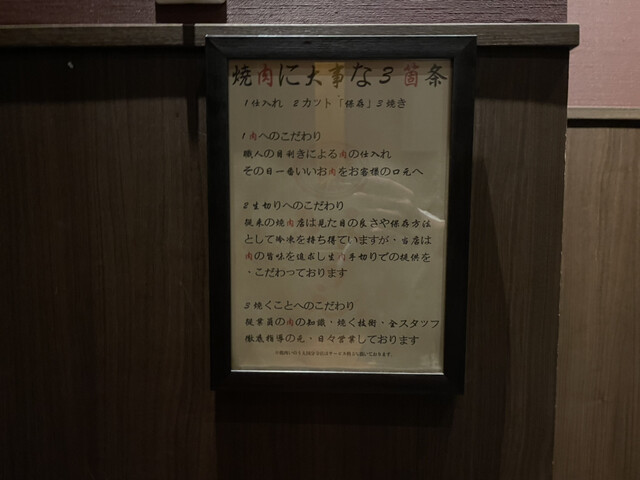 焼肉に大事な3箇条
1仕入れ 2カット「保存」3焼き
1肉へのこだわり
職人の目利きによる肉の仕入れ
その日一番いいお肉をお客様の口元へ
2生切りへのこだわり
従来の焼肉店は見た目の良さや保存方法
として冷凍を持ち得ていますが、当店は
肉の旨味を追求し生肉手切りでの提供を
、こだわっております
3焼くことへのこだわり
従業員の肉の知識・焼く技術・全スタッフ
徹底指導の元、日々営業しております